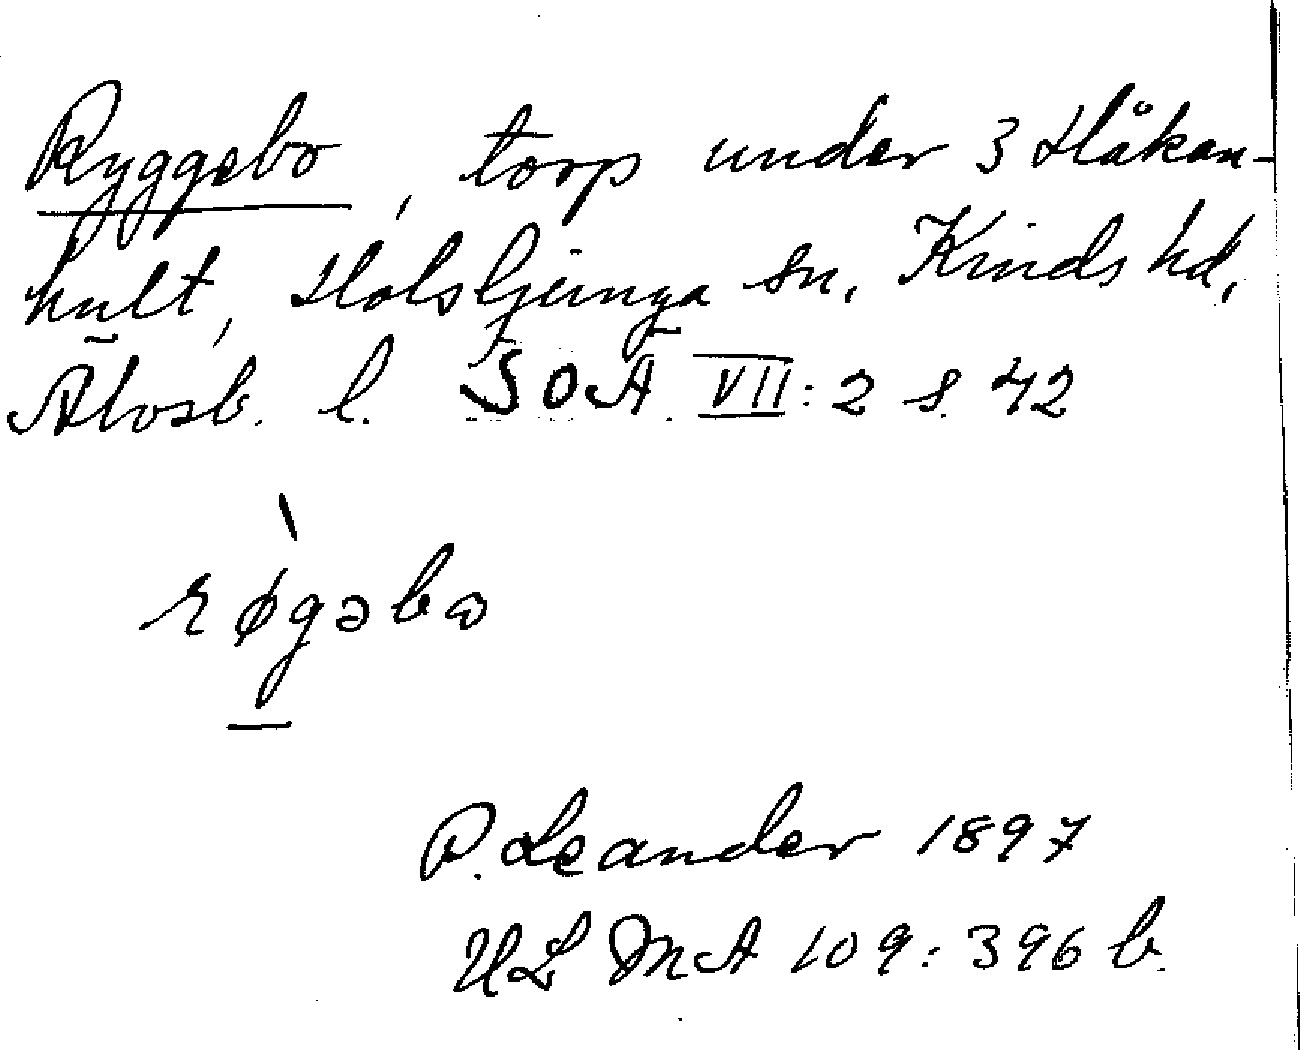 Ryggebo, torp under 3 Håkan-
hult, Holsljunga sn, Kinds hd,
Älvsb. l. SOÄ VII:2 s. 42
rø̀gəbω
P. Leander 1897
ULMA 109:396 b.